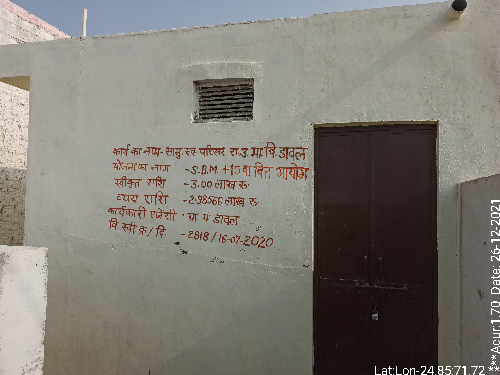 कार्य का नाम - सामु. स्व. परिसर रा. उ. मा. वि. डावल
योजना का नाम - S.B.M. + 15 वां वित्त आयोग
स्वीकृत राशि - 3.00 लाख रु.
व्यय राशि - 2.98566 लाख रु.
कार्यकारी एजेंसी : ग्रा पं डावल
वि. स्वी. क्र. / दि. - 2818 / 16-07-2020
Lat:Lon-24.8571,72
***Acur:1.70 Date: 26-12-2021